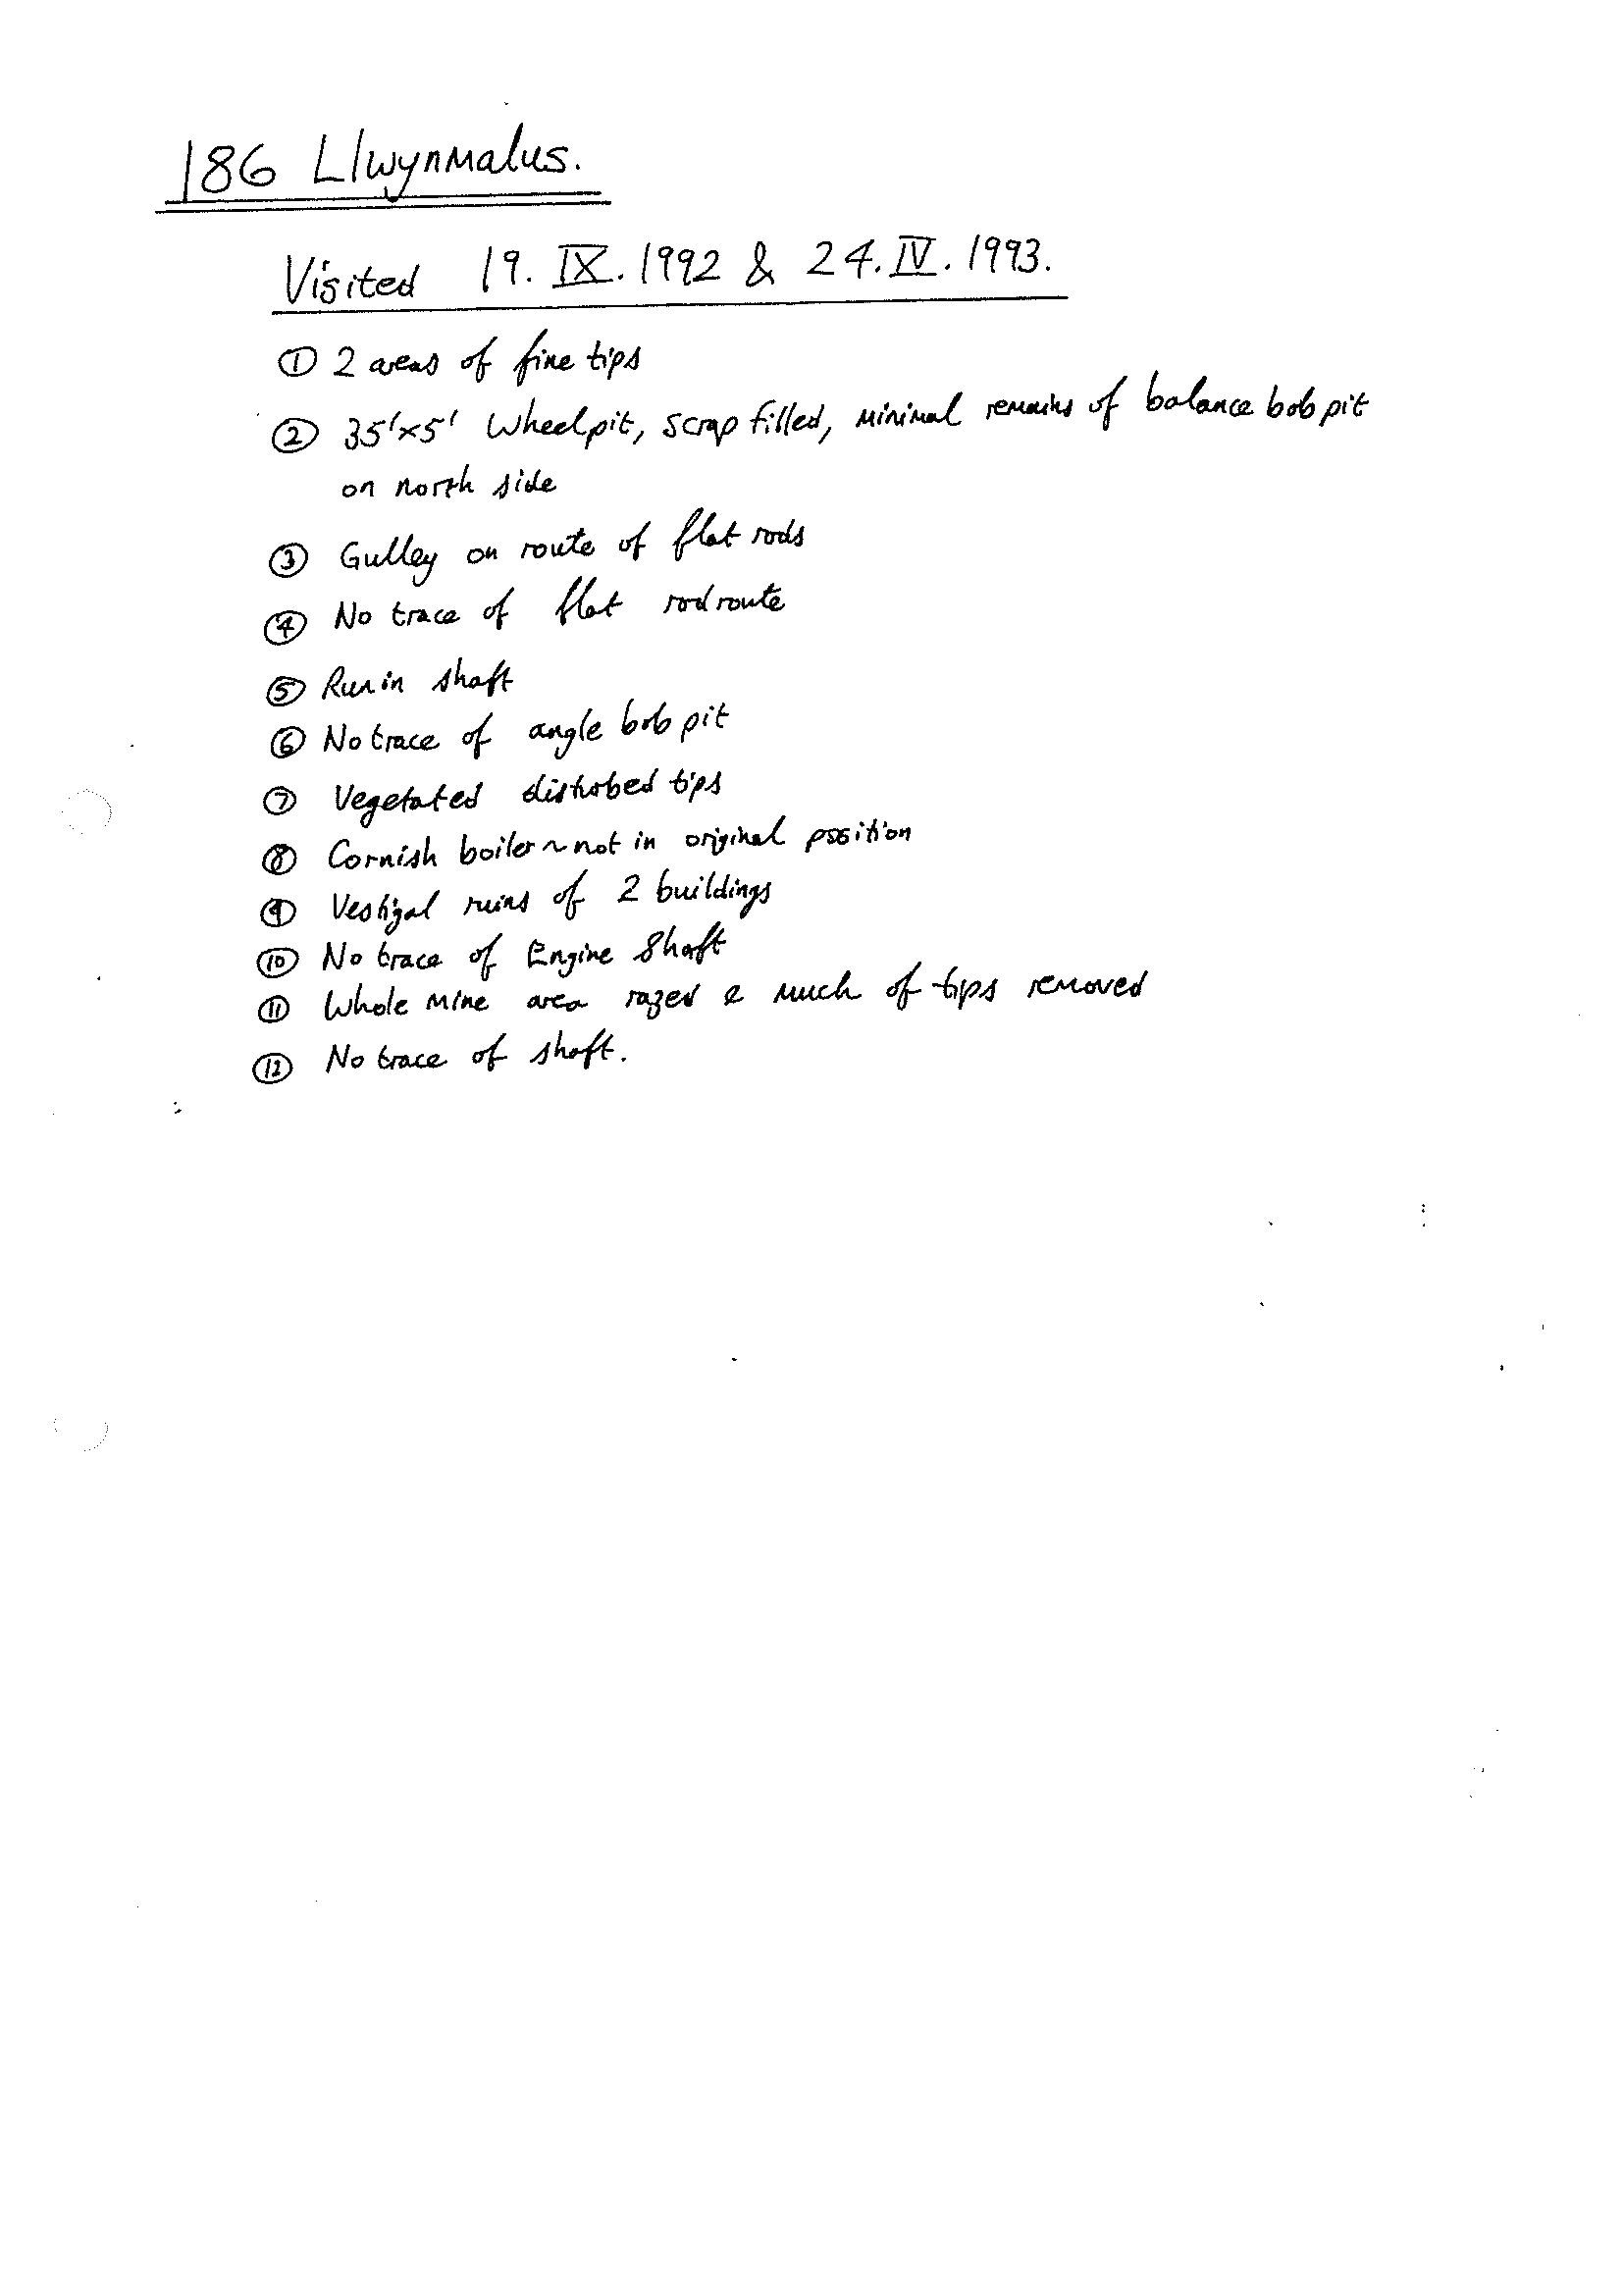 186 Llwynmalus.
Visited 19. IX. 1992 & 24. IV. 1993.
① 2 areas of fine tips
② 35'x5' Wheelpit, scrap filled, minimal remains of balance bob pit
on north side
③ Gulley on route of flat rods
④ No trace of flat rod route
⑤ Run in shaft
⑥ No trace of angle bob pit
⑦ Vegetated disturbed tips
⑧ Cornish boiler ~ not in original position
⑨ Vestigal ruins of 2 buildings
⑩ No trace of Engine Shaft
⑪ Whole mine area razed & much of tips removed
⑫ No trace of shaft.